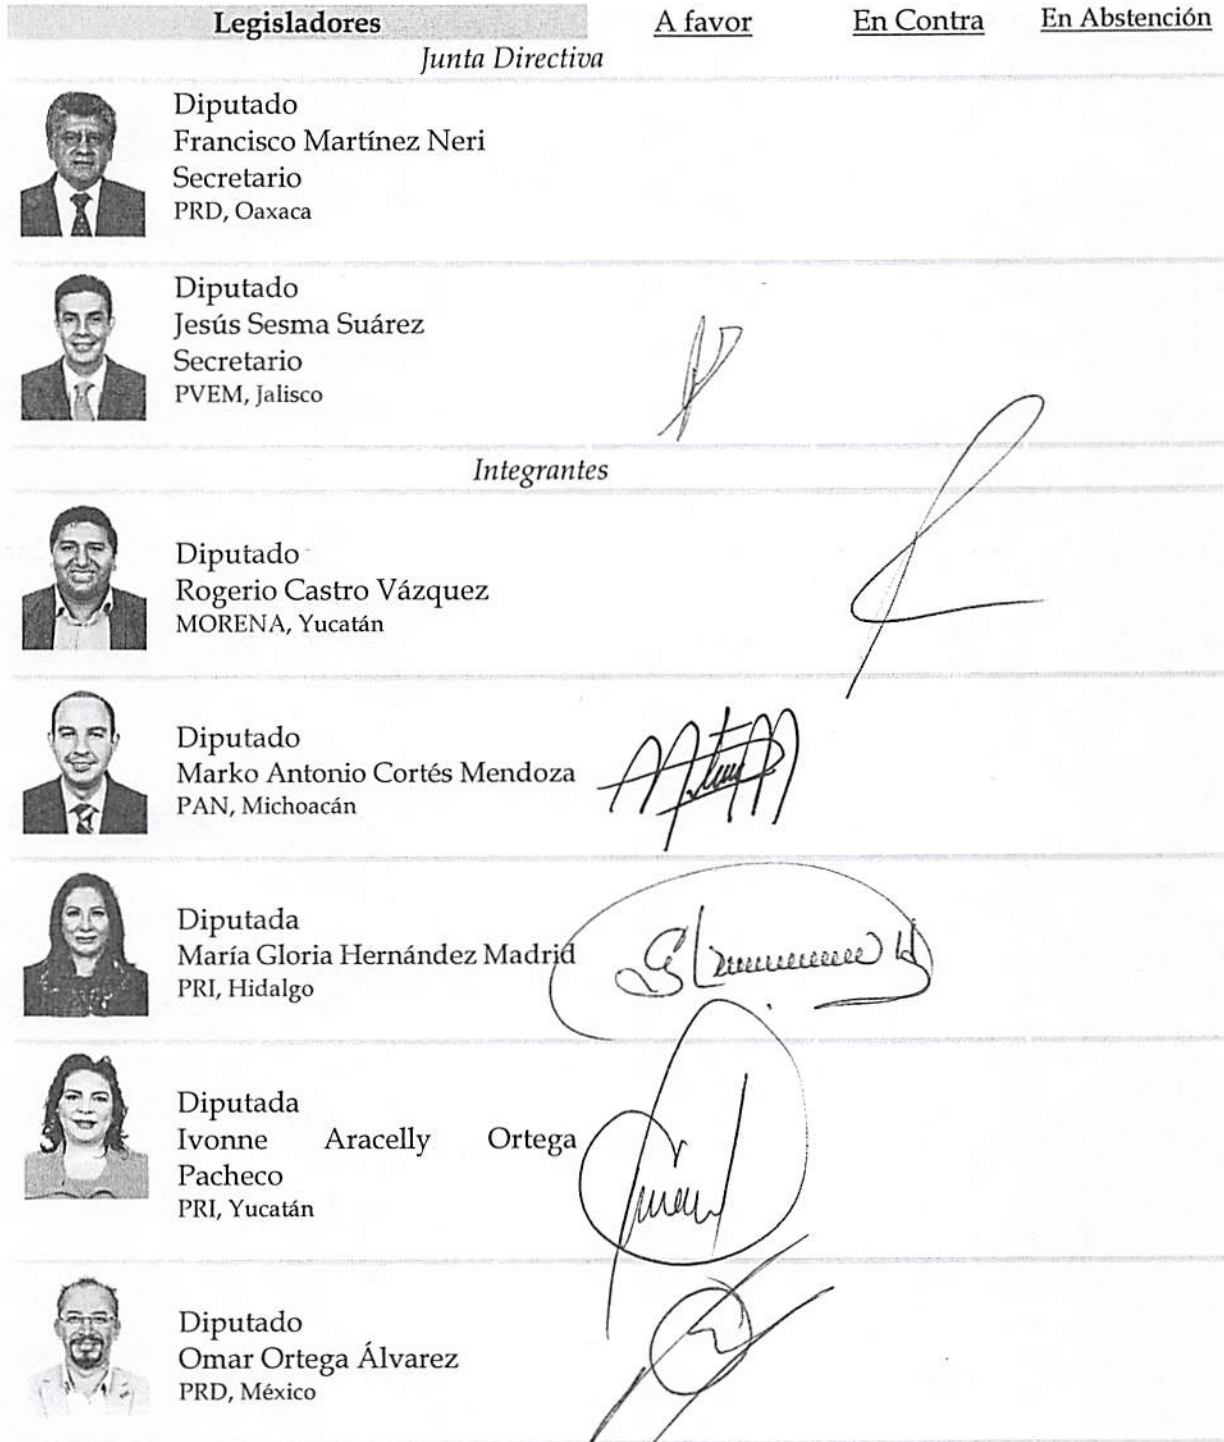 Legisladores A favor En Contra En Abstención
Junta Directiva
Diputado
Francisco Martínez Neri
Secretario
PRD, Oaxaca
Diputado
Jesús Sesma Suárez
Secretario
PVEM, Jalisco
Integrantes
Diputado
Rogerio Castro Vázquez
MORENA, Yucatán
Diputado
Marko Antonio Cortés Mendoza
PAN, Michoacán
Diputada
María Gloria Hernández Madrid
PRI, Hidalgo
Diputada
Ivonne Aracelly Ortega
Pacheco
PRI, Yucatán
Diputado
Omar Ortega Álvarez
PRD, México